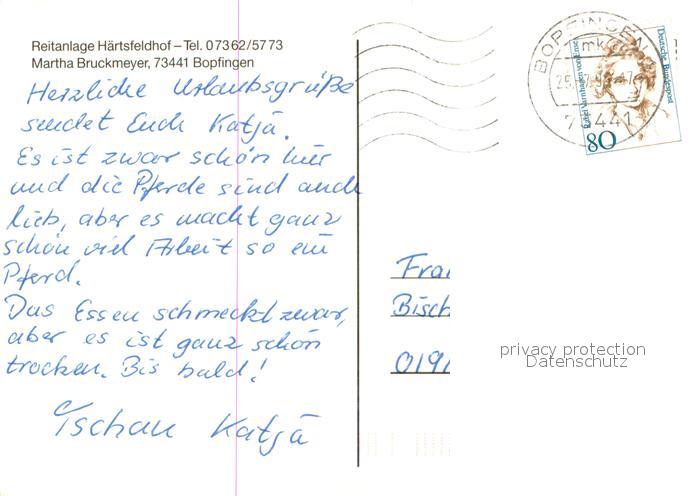 Reitanlage Härtsfeldhof – Tel. 0 73 62/57 73
Martha Bruckmeyer, 73441 Bopfingen
Herzliche Urlaubsgrüße
sendet Euch Katja.
Es ist zwar schön hier
und die Pferde sind auch
lieb, aber es macht ganz
schön viel Arbeit so ein
Pferd.
Das Essen schmeckt zwar,
aber es ist ganz schön
trocken. Bis bald!
Tschau Katja
BOPFINGEN
mk
73441
Rahel Varnhagen von Ense
Deutsche Bundespost
80
Frau
Bisch
019
privacy protection
Datenschutz